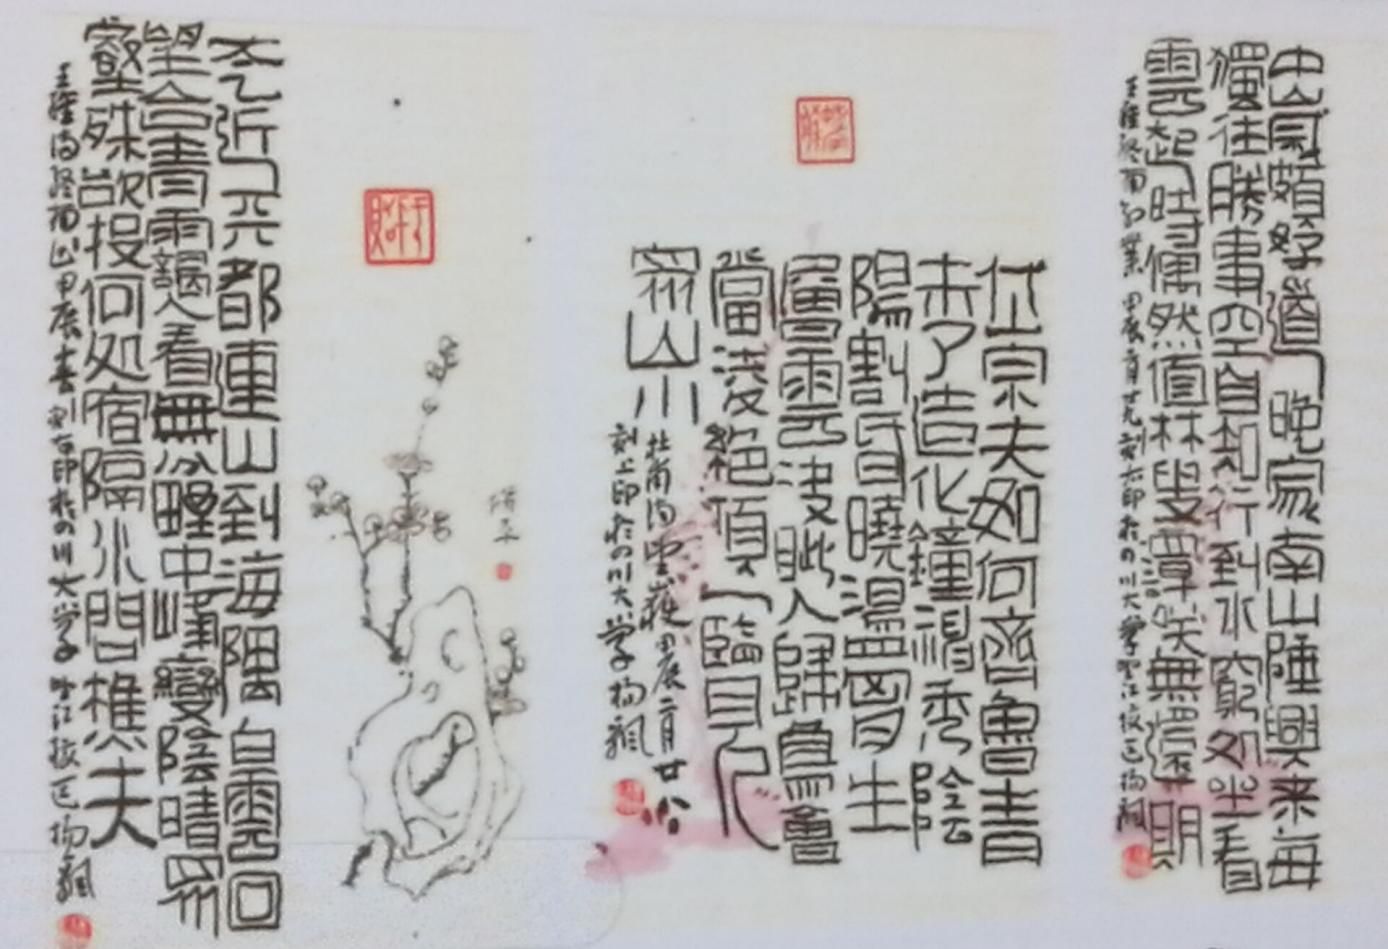 中歲頗好道晚家南山陲興来每
獨往勝事空自知行到水窮処坐看
雲起時偶然值林叟譚咲無還期
王維終南別業 甲辰二月廿九刻石印於四川大學望江校區楊飆
岱宗夫如何齊魯青
未了造化鐘神秀陰
陽割昏曉盪胷生
層雲決眥入歸鳥會
當凌絕頂一覽
眾山小
杜甫詩望嶽甲辰二月廿八
刻上印於四川大學子楊飆
太乙近天都連山到海隅白雲回
望合青靄入看無分野中峰變陰晴眾
壑殊欲投何処宿隔水問樵夫
王維詩終南山甲辰春刻石印於四川大學子望江校區楊飆